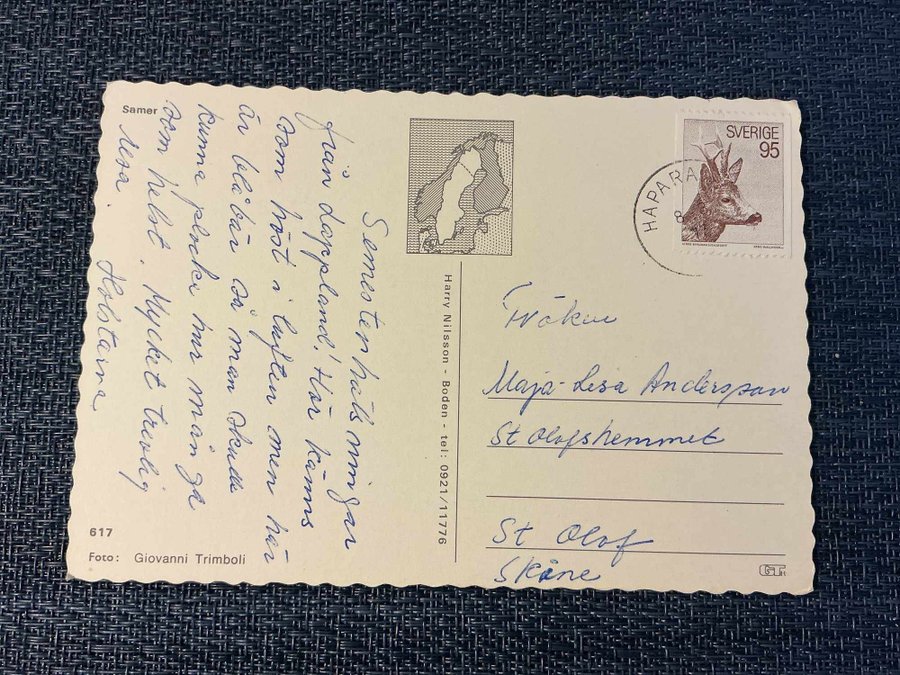 Samer
Semesterhälsningar
från Lappland! Här känns
som höst i luften men här
är blåbär så man skulle
kunna plocka hur många
som helst. Mycket trevlig
resa. Holstarna
617
Foto: Giovanni Trimboli
Harry Nilsson - Boden - tel: 0921/11776
SVERIGE
95
HAPARA
8
Fröken
Maja-Lisa Andersson
St Olofshemmet
St Olof
Skåne